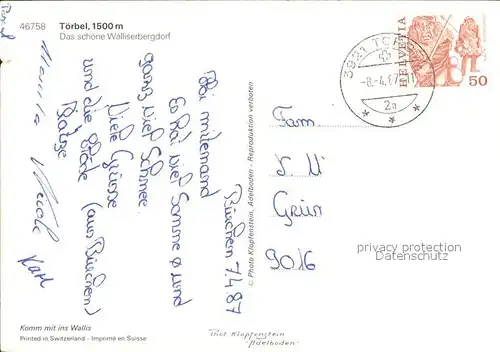 46758
Törbel, 1500 m
Das schöne Walliserbergdorf
Bürchen 7.4.87
Hoi mitenand
Es hät viel Sonne und
ganz viel Schnee
Viele Grüsse
und die
(aus Bürchen)
Nicole
Karl
Komm mit ins Wallis
Printed in Switzerland - Imprimé en Suisse
© Photo Klopfenstein, Adelboden - Reproduktion verboten
Phot Klopfenstein
"Adelboden"
3921 TÖRBEL
-8.-4.87
2a
HELVETIA
50
Fam.
Grün
9016
privacy protection
Datenschutz